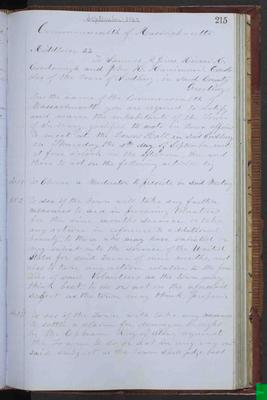 September 1862
215
Commonwealth of Massachusetts
Middlesex SS.
To Samuel A. Jones
and John H.
of the Town of Sudbury in said County
Greeting
In the name of the Commonwealth of
Massachusetts you are required to notify
and warn the inhabitants of the Town
of Sudbury qualified to vote in Town affairs
to meet at the Town Hall in said Sudbury
on Thursday the 4th day of September
at four o'clock in the afternoon then and
there to act on the following articles viz
To Choose a Moderator to preside in said Meeting
To see if the Town will take any further
measures to aid in procuring Volunteers
for the nine months service or take
any action in reference to additional
bounty to those who may have enlisted or
may enlist in the service of the United
States for said Term of nine months and
also to take any action relative to the
of said Volunteers as the Town may
think best to do or act on the aforesaid
subject as the town may think proper
To see if the Town will take any measures
to settle a claim for damages brought
by against
the Town or to do or act in any way on
said subject as the Town shall judge best